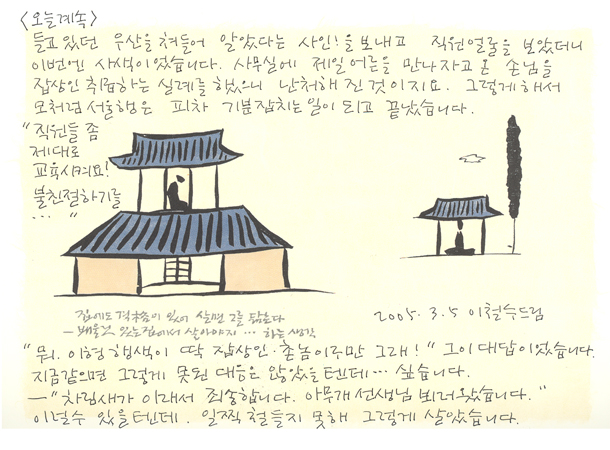 <오늘계속>
들고 있던 우산을 쳐들어 알았다는 사인!을 보내고 직원얼굴을 보았더니
이번엔 사색이었습니다. 사무실에 제일어른을 만나자고 온 손님을
잡상인 취급하는 실례를 했으니 난처해진 것이지요. 그렇게 해서
모처럼 서울행은 피차 기분잡치는 일이 되고 끝났습니다.
"직원들 좀
제대로
교육시켜요!
불친절하기를
… "
집에도 겸손이 있어 살면 그를 닮는다
— 배울것 있는 집에서 살아야지 … 하는 생각
2005. 3. 5 이철수드림
"뭐. 이형 행색이 딱 잡상인·촌놈이구만 그래!" 그이 대답이었습니다.
지금같으면 그렇게 못된 대응은 않았을텐데… 싶습니다.
—"차림새가 이래서 죄송합니다. 아무개선생님 뵈러왔습니다."
이럴수 있을텐데. 일찍 철들지 못해 그렇게 살았습니다.